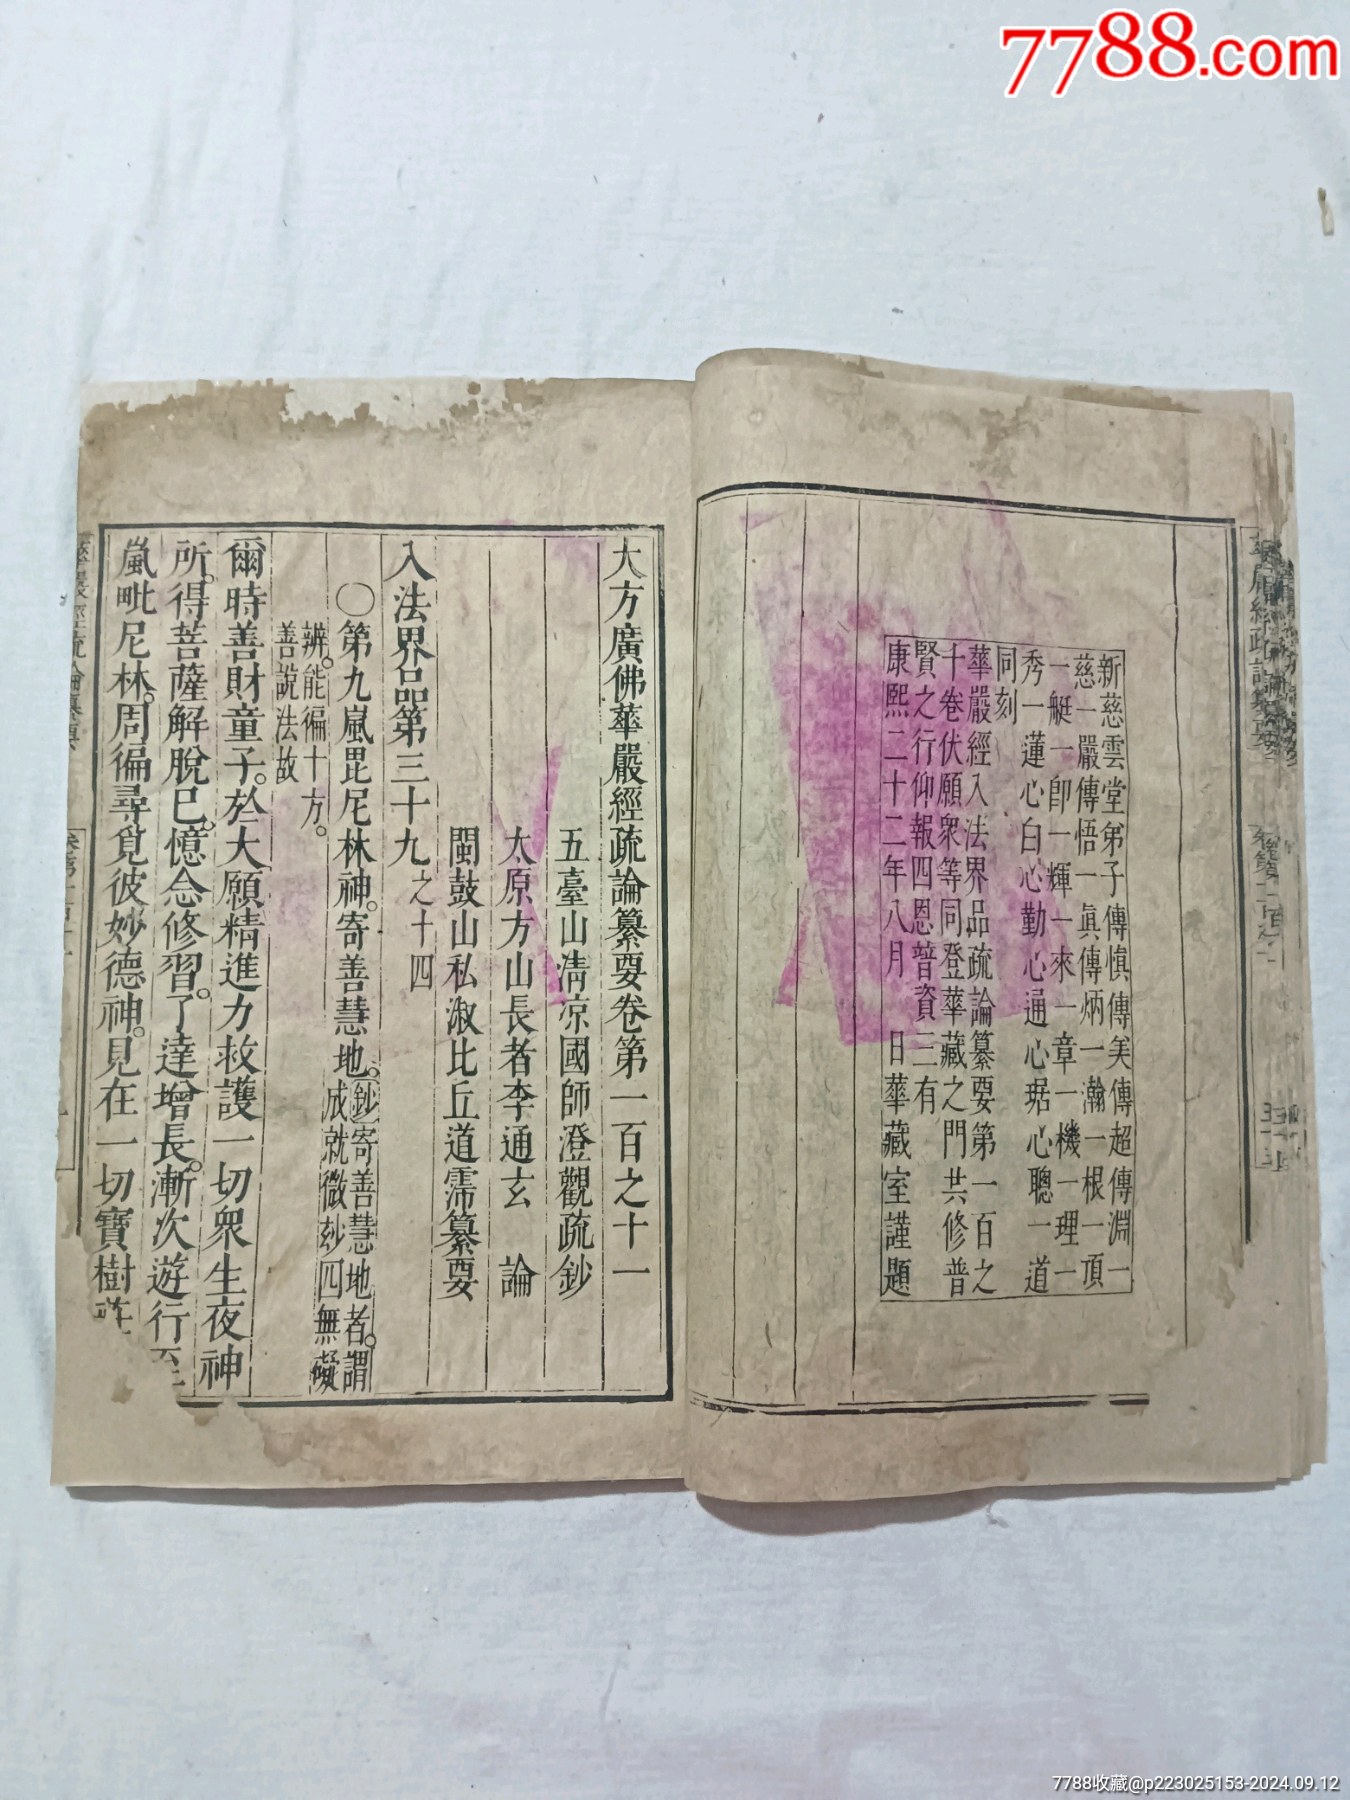 7788.com
新慈雲堂弟子傳慎傳美傳超傳淵一
慈一嚴傳悟一眞傳炳一瀚一根一頂
一艇一卽一輝一來一章一機一理一
秀一蓮心白心勤心通心琚心聰一道
同刻
華嚴經入法界品疏論纂要第一百之
十卷伏願衆等同登華藏之門共修普
賢之行仰報四恩普資三有
康熙二十二年八月 日華藏室謹題
大方廣佛華嚴經疏論纂要卷第一百之十一
五臺山清凉國師澄觀疏鈔
太原方山長者李通玄 論
閩鼓山私淑比丘道霈纂要
入法界品第三十九之十四
○第九嵐毘尼林神。寄善慧地。鈔寄善慧地者。謂
成就微玅四無礙
辨。能徧十方。
善說法故
爾時善財童子。於大願精進力救護一切衆生夜神
所。得菩薩解脫已。憶念修習。了達增長。漸次遊行至
嵐毗尼林。周徧尋覓彼妙德神。見在一切寶樹
7788收藏@p223025153-2024.09.12